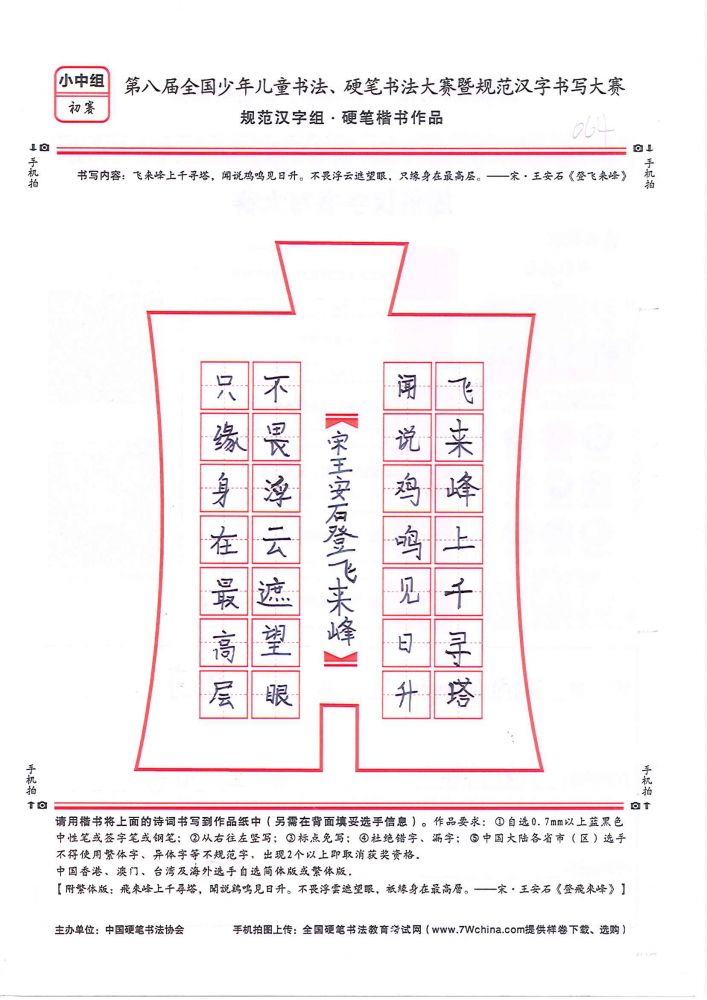 小中组
初赛
第八届全国少年儿童书法、硬笔书法大赛暨规范汉字书写大赛
规范汉字组·硬笔楷书作品
064
手机拍
手机拍
书写内容：飞来峰上千寻塔，闻说鸡鸣见日升。不畏浮云遮望眼，只缘身在最高层。——宋·王安石《登飞来峰》
飞来峰上千寻塔
闻说鸡鸣见日升
宋王安石登飞来峰
不畏浮云遮望眼
只缘身在最高层
手机拍
手机拍
请用楷书将上面的诗词书写到作品纸中（另需在背面填妥选手信息）。作品要求：①自选0.7mm以上蓝黑色
中性笔或签字笔或钢笔；②从右往左竖写；③标点免写；④杜绝错字、漏字；⑤中国大陆各省市（区）选手
不得使用繁体字、异体字等不规范字，出现2个以上即取消获奖资格。
中国香港、澳门、台湾及海外选手自选简体版或繁体版。
【附繁体版：飛來峰上千尋塔，聞說鷄鳴見日升。不畏浮雲遮望眼，衹緣身在最高層。——宋·王安石《登飛來峰》】
主办单位：中国硬笔书法协会
手机拍图上传：全国硬笔书法教育考试网（www.7Wchina.com提供样卷下载、选购）